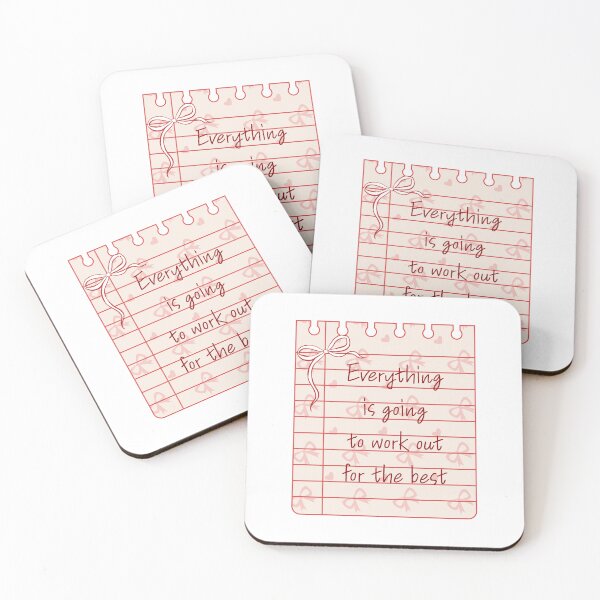 Everything
is going
out
Everything
is going
to work out
for the
Everything
is going
to work out
for the best
Everything
is going
to work out
for the best